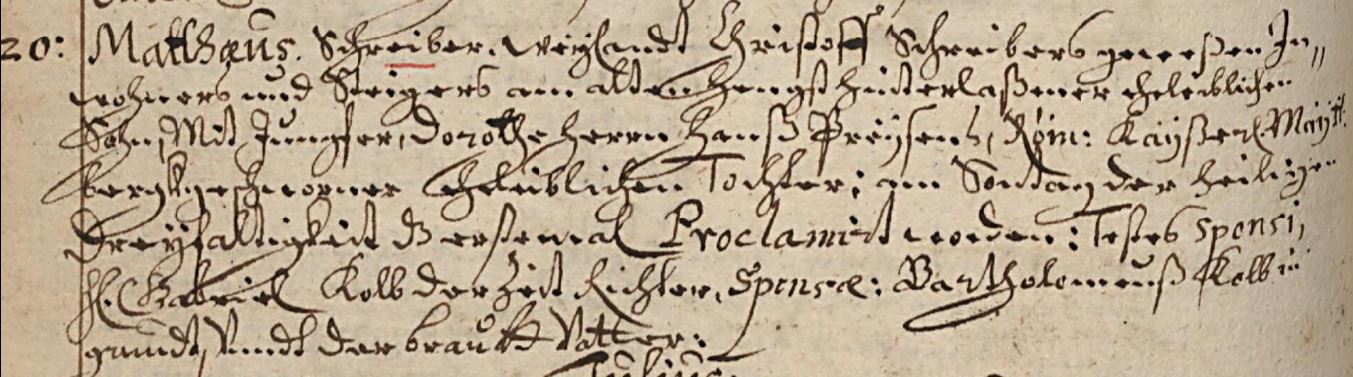 20: Matthæus. Schreiber. weÿlandt Christoff Schreibers geweßen In„
wohners und Steigers am alten Hengst hinterlaßener eheleiblicher
Sohn, Mit Jungfer, Dorothe Herrn Hanß Preÿsens, Röm: Kaÿßerl. Maÿtt.
bergkgeschworner Eheleiblichen Tochter: am Sontag der heilige
Dreÿfaltigkeit erstemal Proclamirt worden: Testes sponsi,
H. Gabriel Kolb der Zeit Richter, Sponsæ: Bartholomeuß Kolb in
grundt, Vndt der brautt Vatter:
Julius.